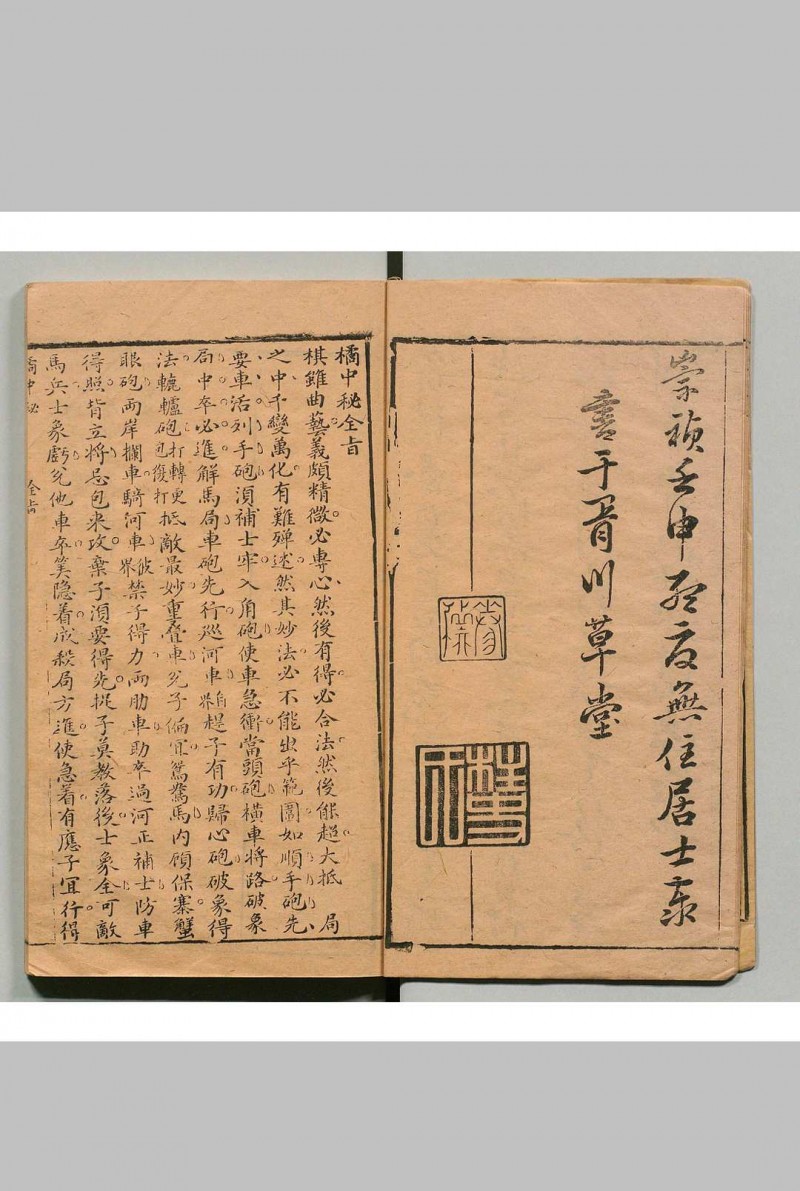 崇禎壬申孟夏無住居士
書于胥川草堂
橘中秘全旨
棋雖曲藝義頗精微必專心然後有得必合法然後能超大抵局
之中千變萬化有難殫述然其妙法必不能出乎範圍如順手砲先
要車活列手砲湏補士牢入角砲使車急衝當頭砲橫車將路破象
局中卒必進解馬局車砲先行巡河車自界趕子有功歸心砲破象得
法轆轤砲包打轉更包復打抵敵最妙重疊車兌子偏宜鴛鴦馬內顧保寨蟹
眼砲兩岸攔車騎河車彼界禁子得力兩肋車助卒過河正補士防車
得照背立將忌包来攻棄子湏要得先捉子莫教落後士象全可敵
馬兵士象虧兌他車卒算隐着成殺局方進使急着有應子宜行得
橘中秘
全旨